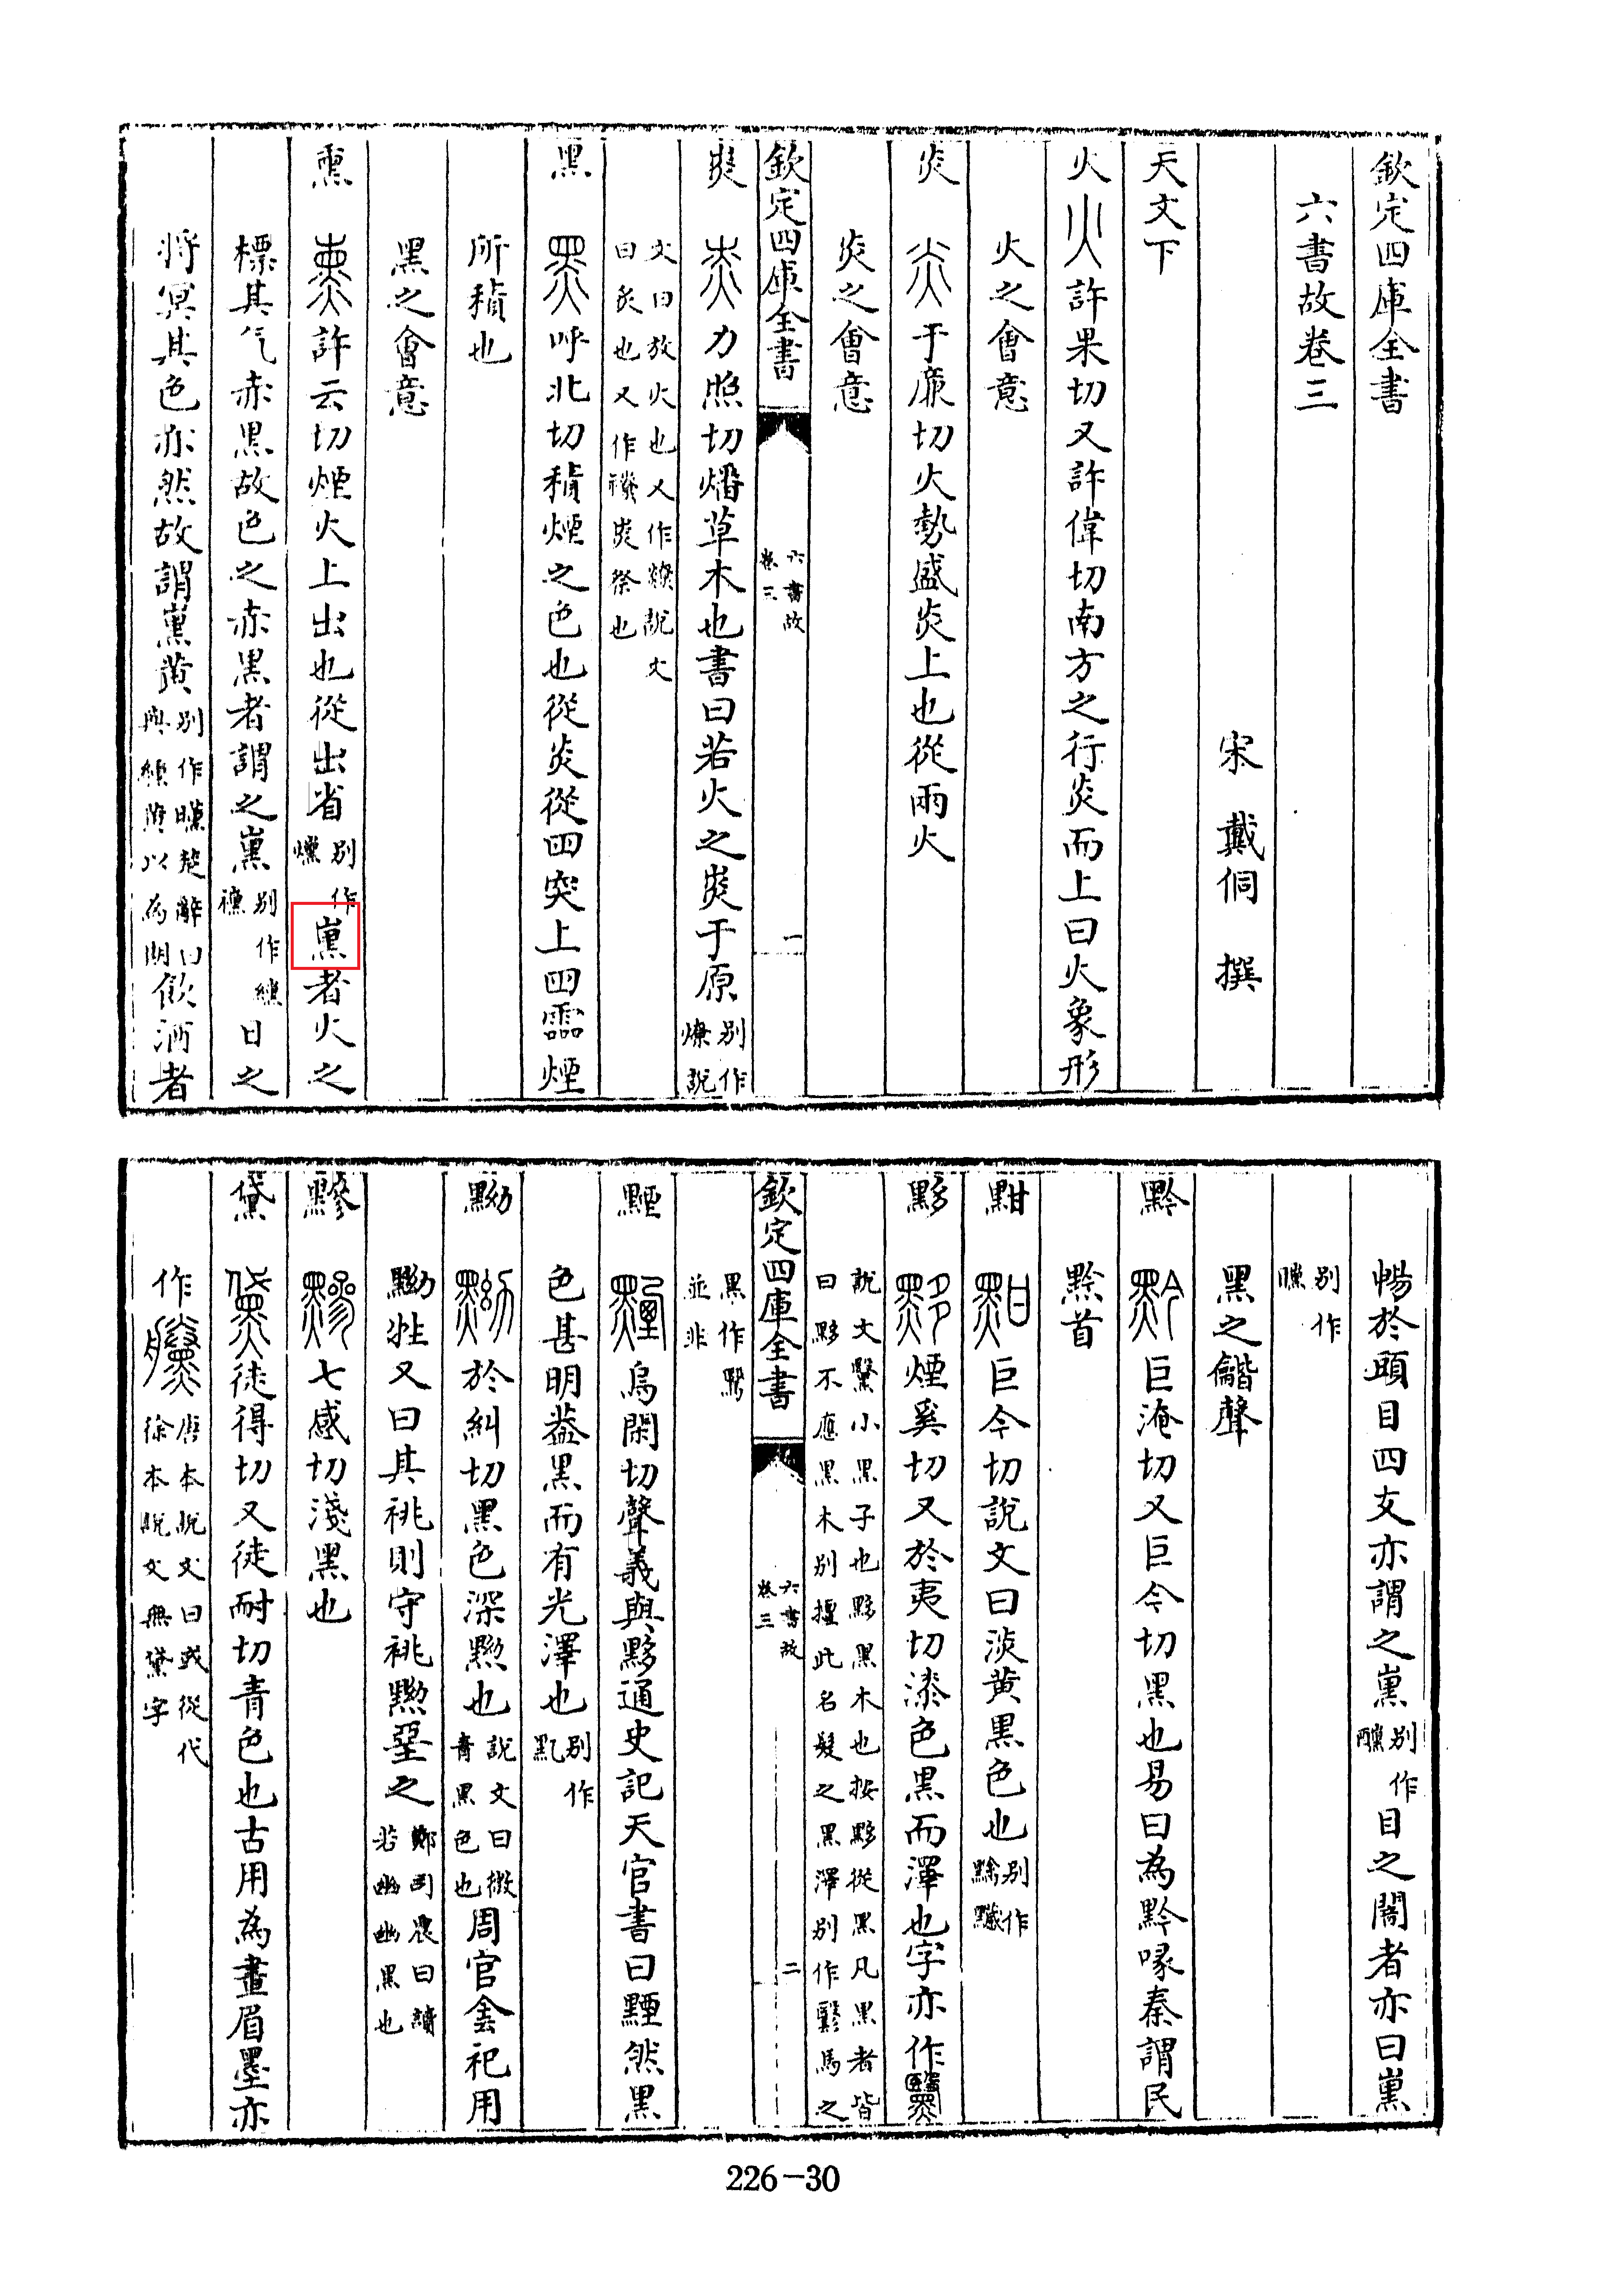 欽定四庫全書
六書故卷三
宋 戴侗 撰
天文下
火 許果切又許偉切南方之行炎而上曰火象形
火之會意
炎 于廉切火勢盛炎上也從兩火
炎之會意
欽定四庫全書
六書故
卷三
一
力照切燔草木也書曰若火之于原別作燎說
文曰放火也又作尞說文
曰炙也又作祭也
黑 呼北切積煙之色也從炎從四突上四霝煙
所積也
黑之會意
熏 許云切煙火上出也從出省別作燻䆫者火之
標其气赤黑故色之赤黑者謂之䆫別作纁
日之
將冥其色亦然故謂䆫黃別作曛楚辭曰
與纁黃以為期飲酒者
暢於頤目四支亦謂之䆫別作醺目之闇者亦曰䆫
別作矄
黑之龤聲
黔 巨淹切又巨今切黑也易曰為黔喙秦謂民
黔首
黚 巨今切說文曰淡黃黑色也別作
黟 煙奚切又於夷切漆色黑而澤也字亦作
說文小黑子也黟黑木也按黟從黑凡黑者皆
曰黟不應黑木別擅此名髮之黑澤別作鷖馬之
欽定四庫全書
六書故
卷三
二
黑作
並非
黫 烏閑切聲義與黟通史記天官書曰黫然黑
色甚明葢黑而有光澤也別作
黝 於糾切黑色深黝也說文曰微
青黑色也周官金祀用
黝牲又曰其祧則守祧黝堊之鄭司農曰讀
若幽幽黑也
黲 七感切淺黑也
黛 徒得切又徒耐切青色也古用為畫眉墨亦
作 唐本說文曰或從代
徐本說文無黛字
226-30